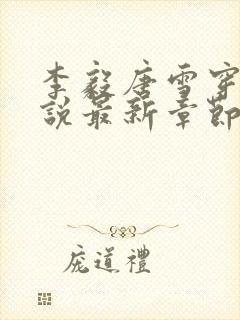 李毅唐雪穿
說最新章節
庞道禮